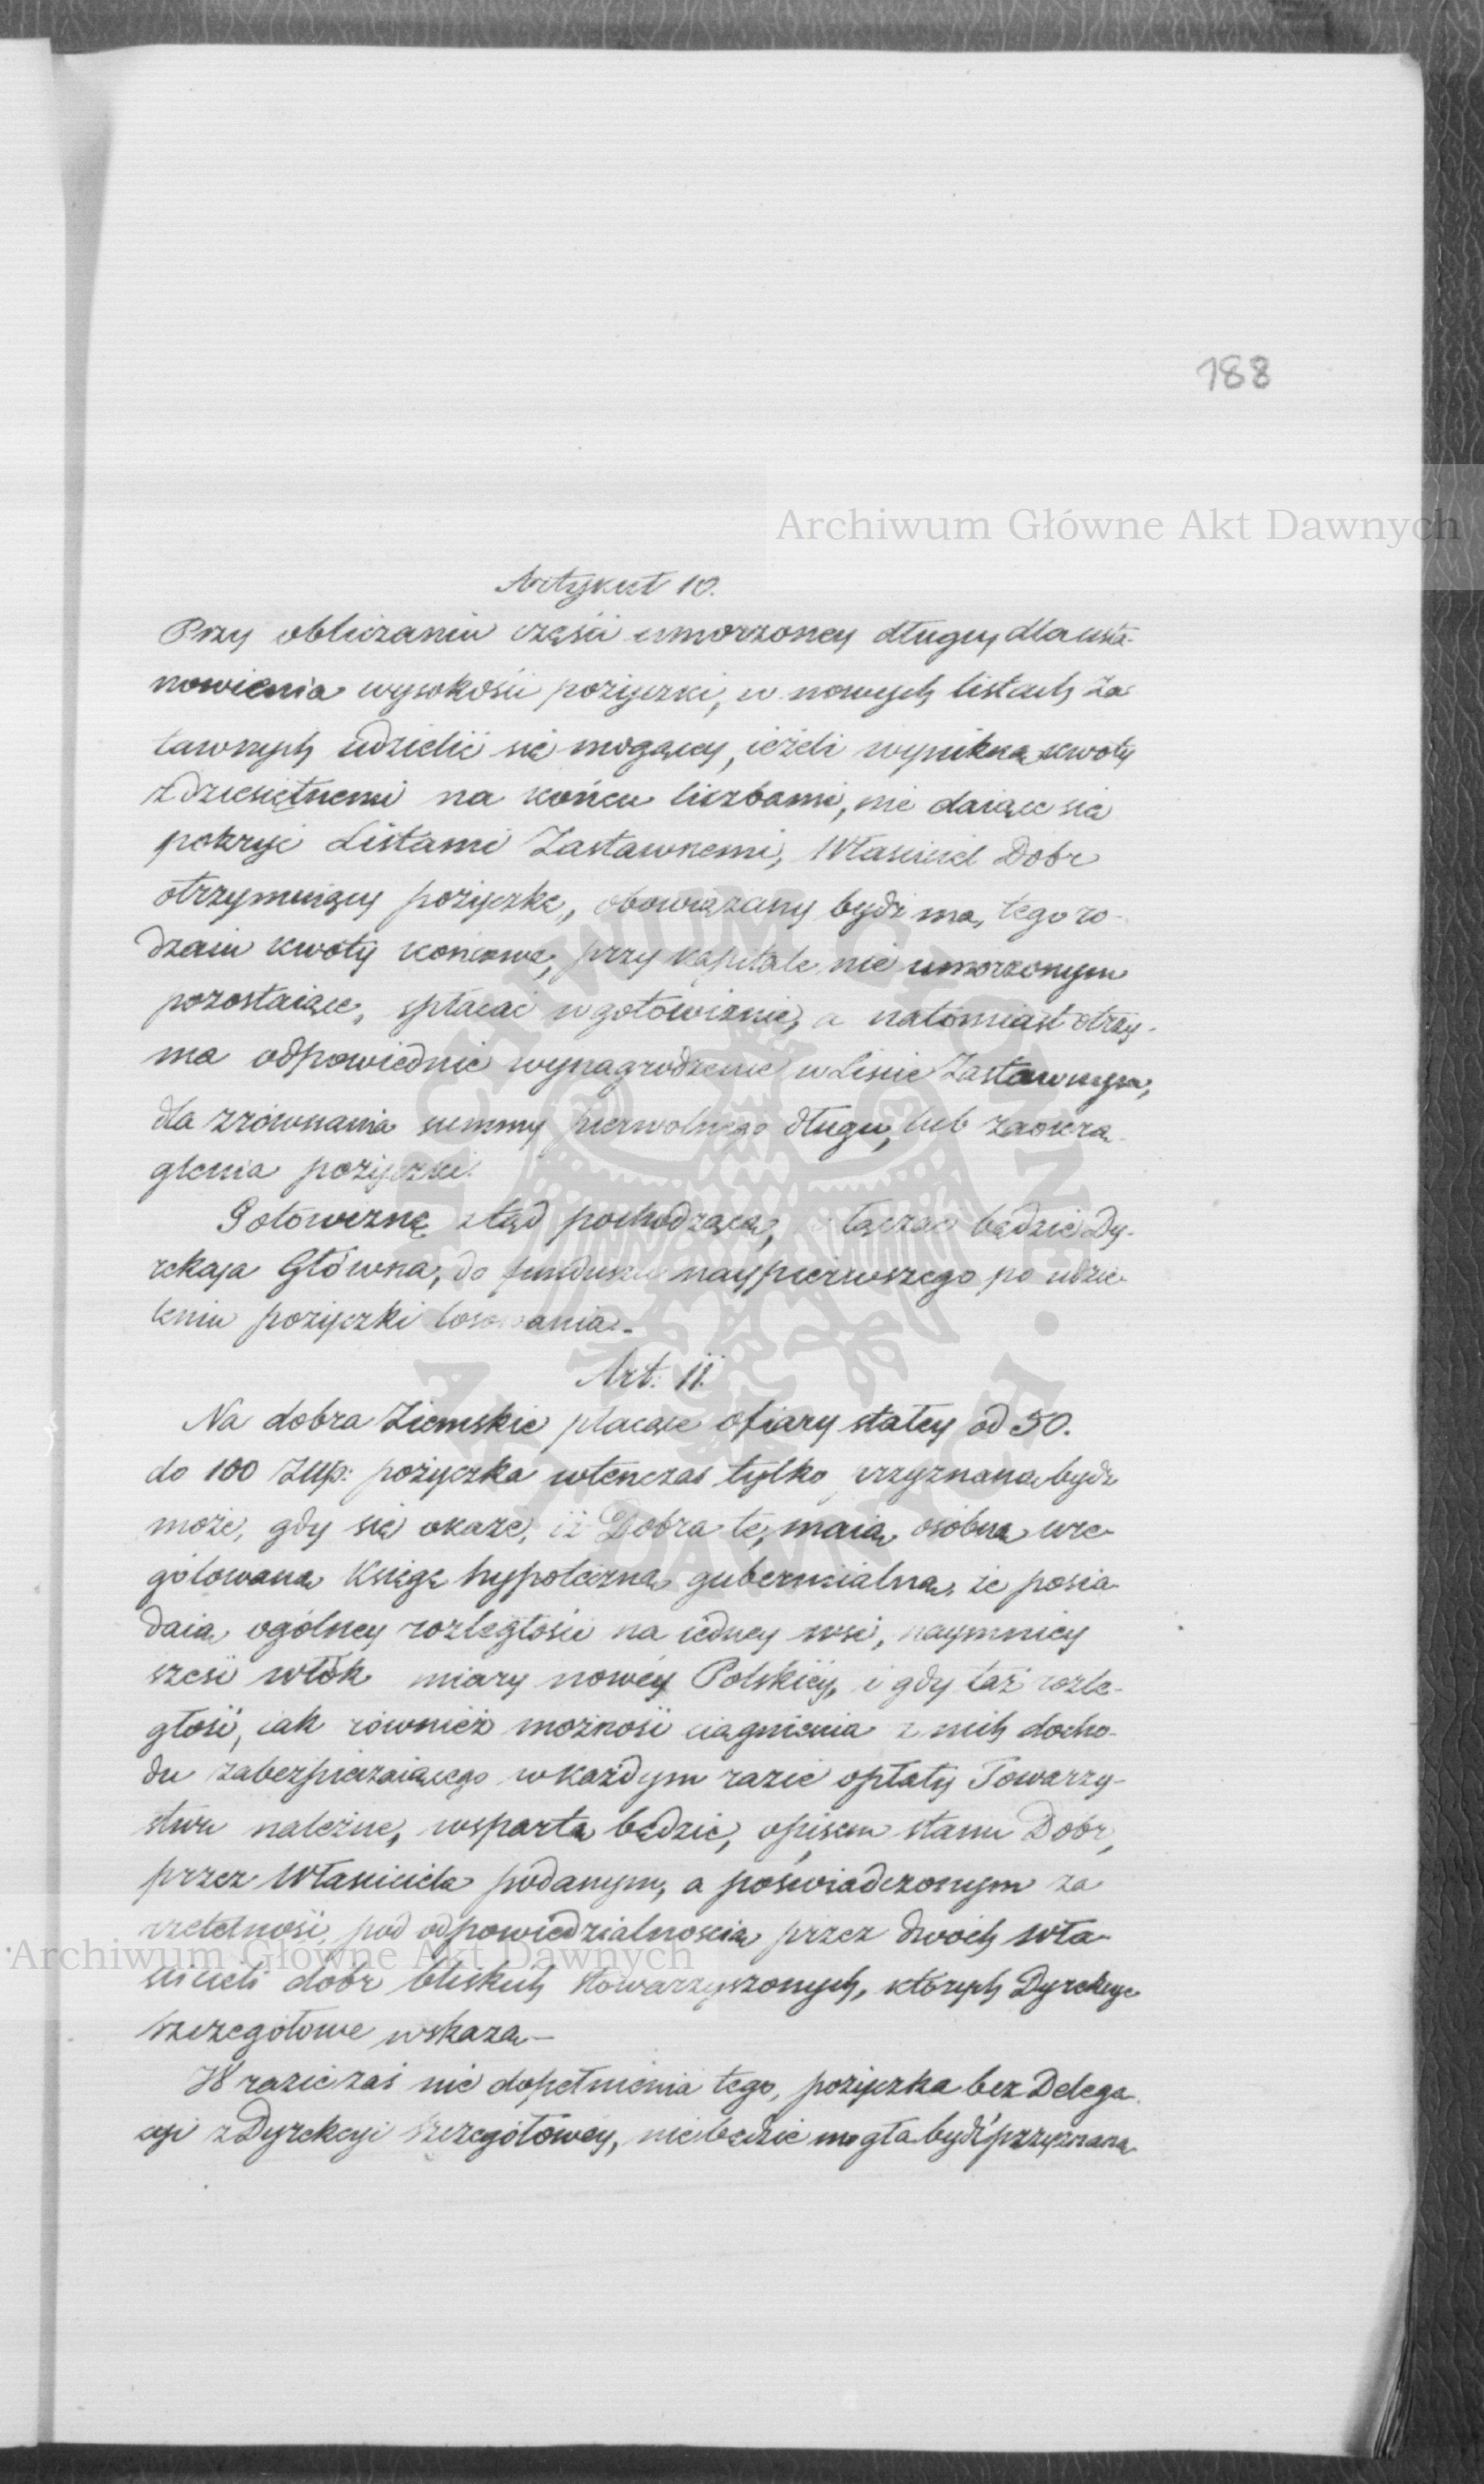 188
Archiwum Główne Akt Dawnych
Artykuł 10.
Przy obliczaniu części umorzoney długu, dla usta-
nowienia wysokości pożyczki, w nowych listach Za-
tawnych udzielić się mogącey, ieżeli wynikną kwoty
z dziesiętnemi na końcu liczbami, nie daiące się
pokryć Listami Zastawnemi, Właściciel Dóbr
otrzymuiący pożyczkę, obowiązany bydź ma, tego ro-
dzaiu kwoty końcowe, przy kapitale nie umorzonym
pozostaiące, spłacać w gotowiznie, a natomiast otrzy-
ma odpowiednie wynagrodzenie w Liście Zastawnym,
dla zrównania summy pierwotnego długu, lub zaokrą-
glenia pożyczki.
Gotowiznę ztąd pochodzącą, łączać będzie Dy-
rekcja Główna, do funduszu naypierwszego po udzie-
leniu pożyczki losowania.-
Art: 11.
Na dobra Ziemskie płacące ofiary stałey od 50.
do 100 Złp: pożyczka wtenczas tylko przyznaną bydź
może, gdy się okaże, iż Dobra te, maią osóbną ure-
gólowaną Księgę hypoteczną gubernialną, że posia-
daią ogólney rozległości na iedney wsi, naymniey
sześć włók miary nowéy Polskiéy, i gdy taż rozle-
głość, iak również możność ciągnienia z nich docho-
du zabezpieczaiącego w każdym razie opłaty Towarzy-
stwu należne, wspartą będzie, opisem stanu Dóbr,
przez Właściciela podanym, a poświadczonym za
rzetelność, pod odpowiedzialnością przez dwóch Wła-
Archiwum Główne Akt Dawnych
ścicieli dóbr bliskich stowarzyszonych, których Dyrekcye
szczegółowe wskażą -
W razie zaś nie dopełnienia tego, pożyczka bez Delega-
cyi z Dyrekcyi Szczegółowey, nie będzie mogła bydź przyznaną
ARCHIWUM GŁÓWNE AKT DAWNYCH